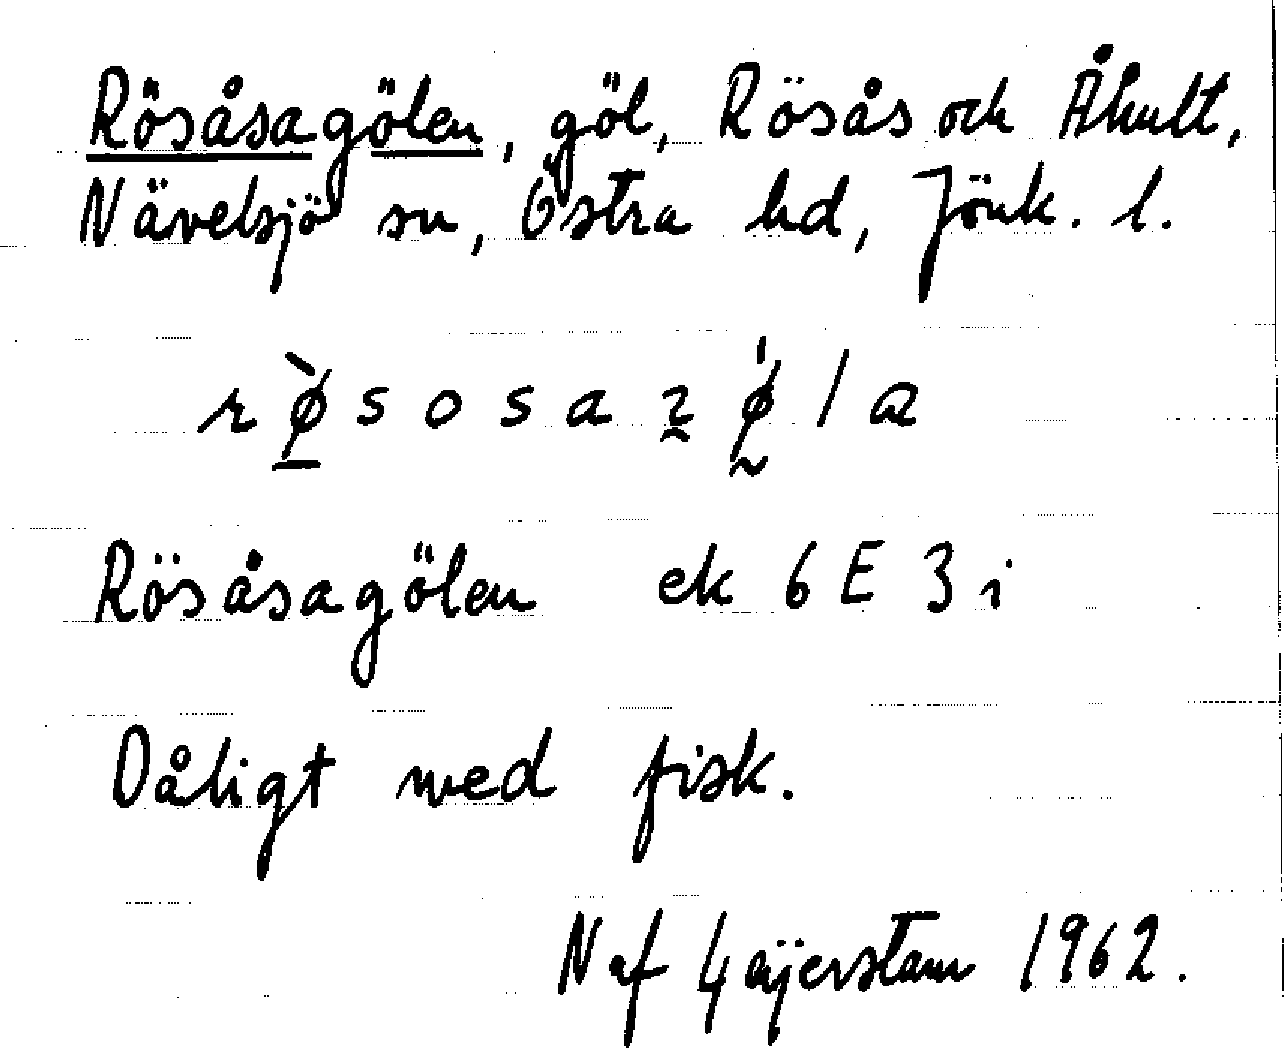 Rösåsagölen, göl, Rösås och Åhult,
Nävelsjö sn, Östra hd, Jönk. l.
Rösåsagölen ek 6 E 3 i
Dåligt med fisk.
N af Geijerstam 1962.